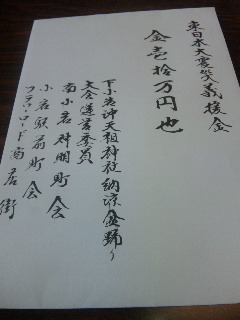 東日本大震災義援金
金壱拾万円也
下小岩天祖神社納涼盆踊り
大会運営委員
南小岩神明町会
小岩駅前町会
フラワーロード商店街